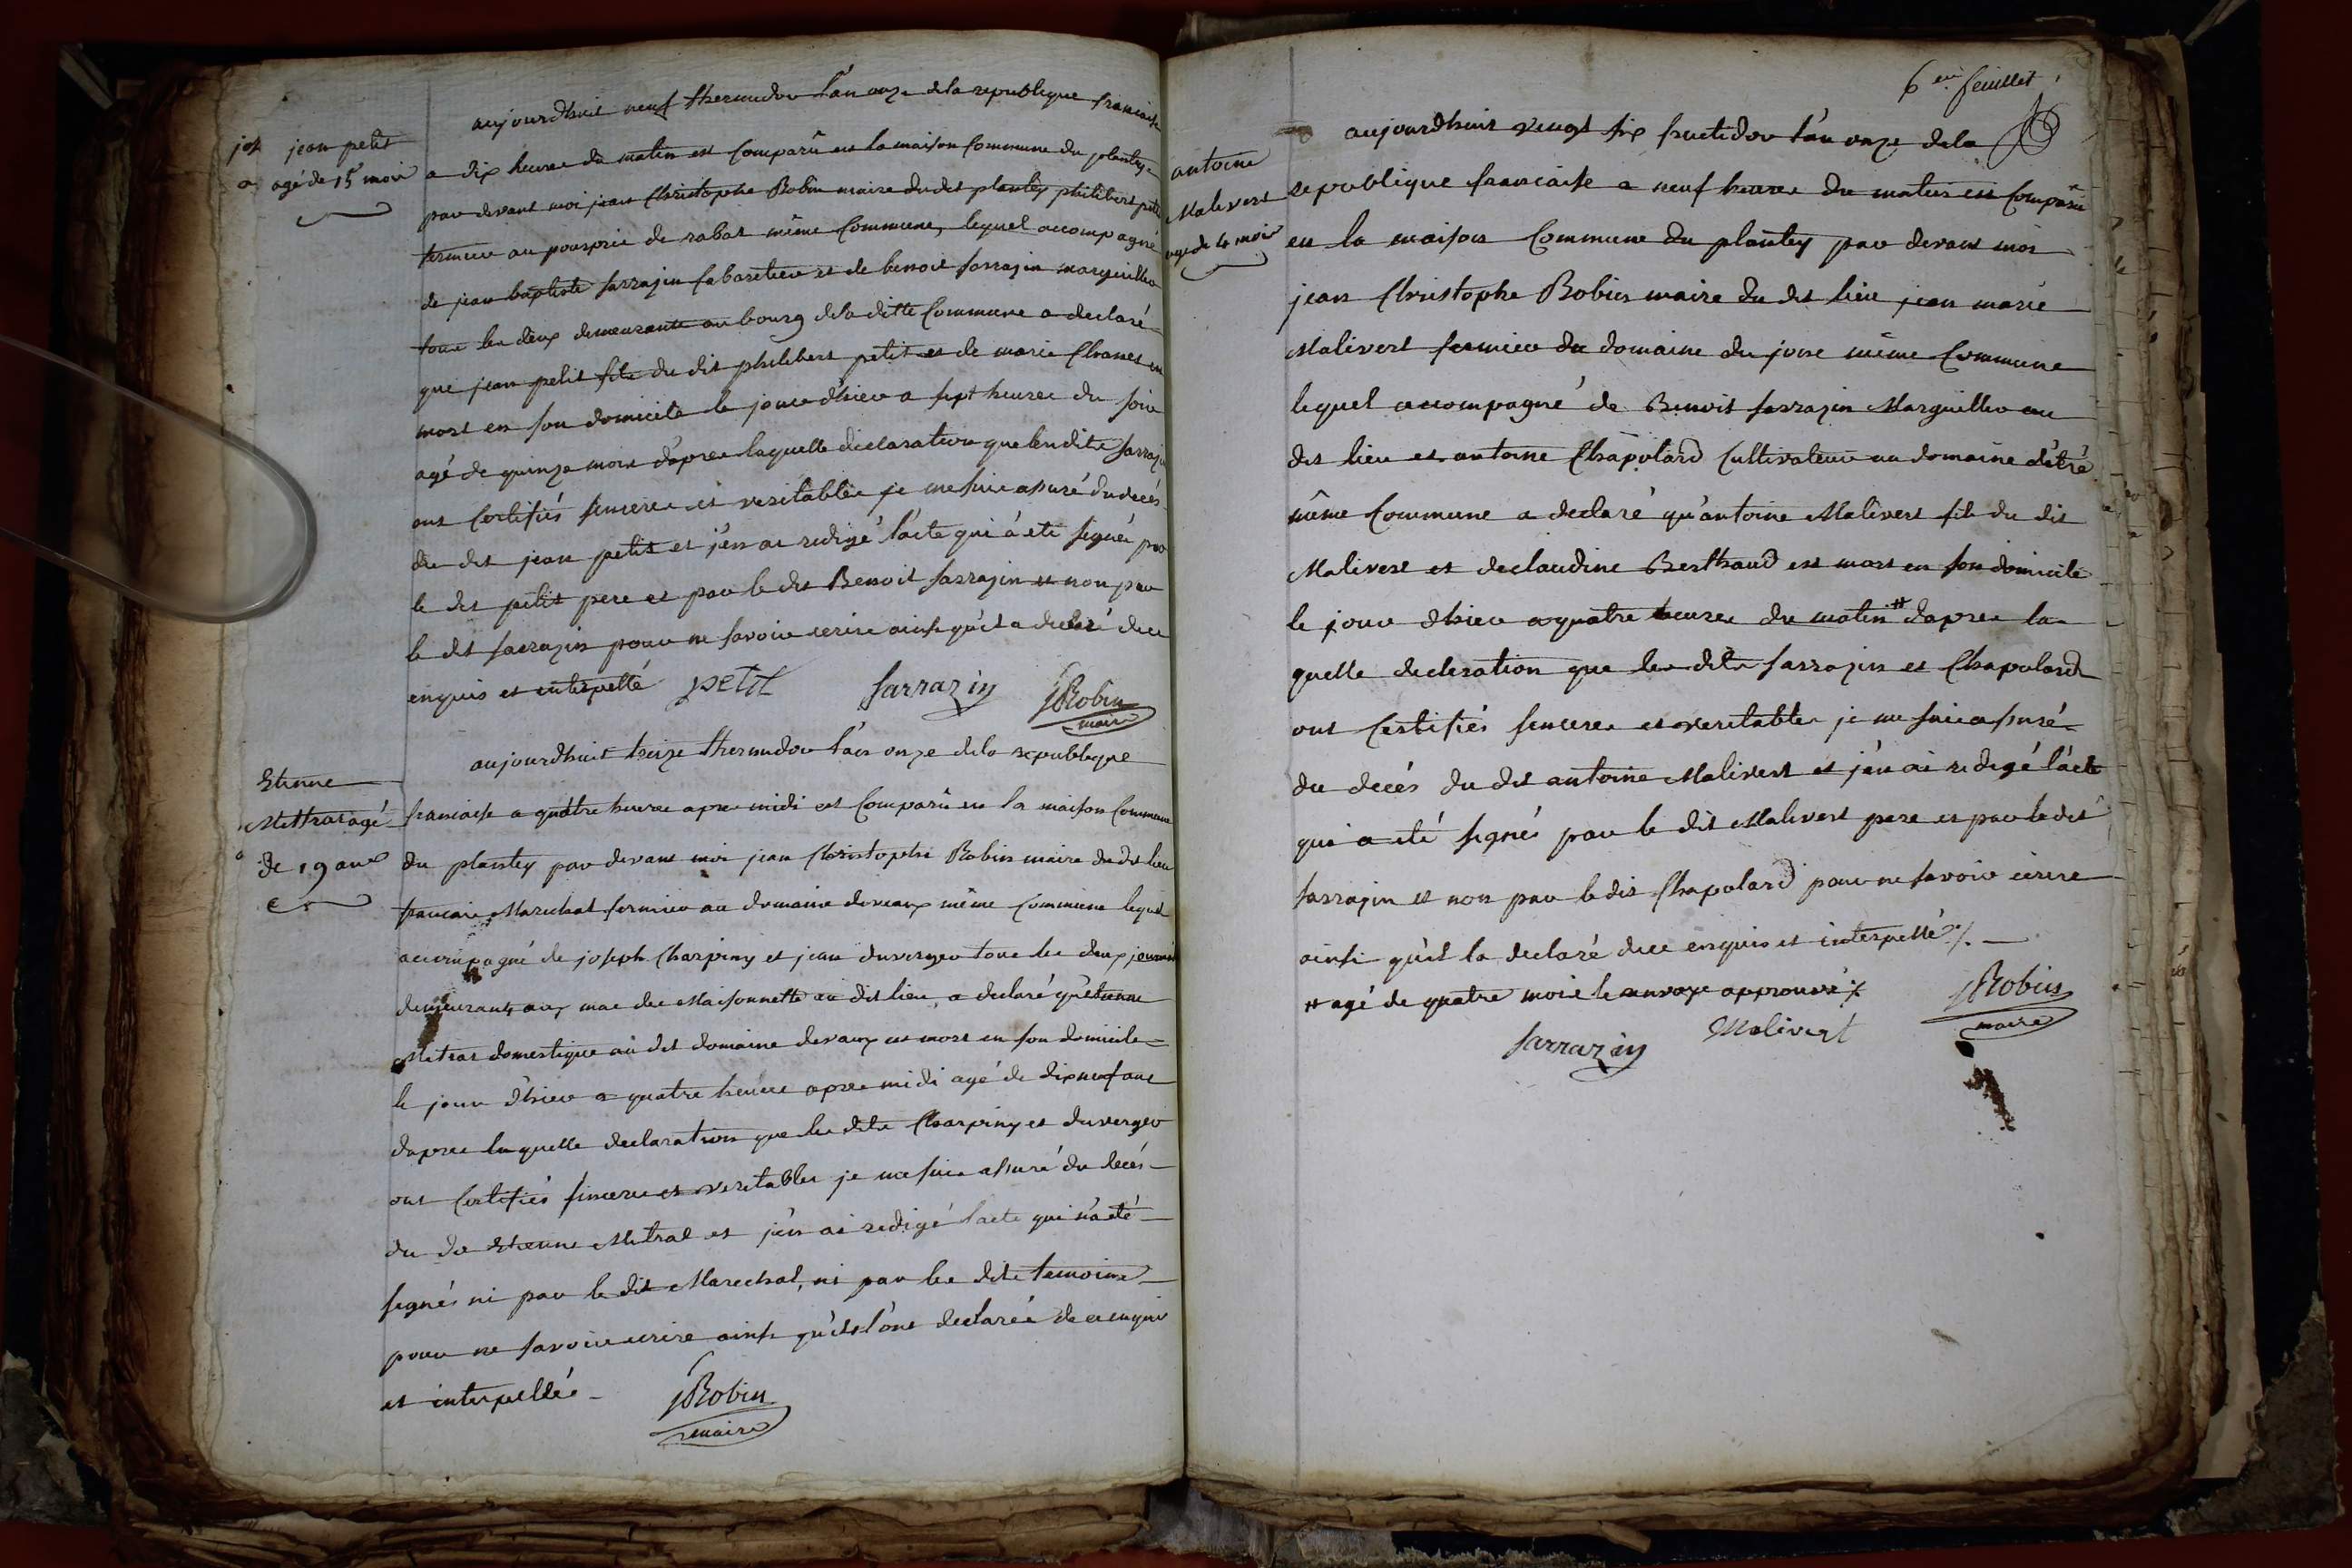 jean petit
agé de 15 mois
aujourdhuit neuf thermidor l'an onze dela republique francaise
a dix heures du matin est Comparû en la maison Commune du plantey
par devant moi jean Christophe Robin maire dudit plantey philibert petit
fermier au pourprix de rabat même Commune, lequel accompagné
de jean baptiste sarrazin Cabaretier et de benoit sarrazin marguillier
tous les deux demeurants au bourg dela ditte Commune a declaré
que jean petit fils du dit philibert petit et de marie Chanel est
mort en son domicile le jour d'hier a sept heures du soir
agé de quinze mois d'apres laquelle declaration que lesdits sarrazin
ont Certifiés sincere et veritable je me suis assuré du decés
du dit jean petit et j'en ai redigé l'acte qui á eté signés par
le dit petit pere et par le dit Benoit sarrazin et non par
le dit sarrazin pour ne savoir ecrire ainsi qu'il a declaré de ce
enquis et interpellé petit sarrazin JRobin
maire
Etienne
Mettras agé
de 19 ans
aujourdhuit treize thermidor l'an onze dela republique
francaise a quatre heures apres midi est Comparû en la maison Commune
du plantey par devant moi jean Christophe Robin maire du dit lieu
francois Marechal fermier au domaine deveaux même Commune lequel
accompagné de joseph Charpiny et jean duverger tous les deux journaliers
demeurants aux mas des Maisonnette au dit lieu, a declaré qu'etienne
Metras domestique au dit domaine devaux est mort en son domicile
le jour d'hier a quatre heures apres midi agé de dix neuf ans
d'apres laquelle declaration que les dits Charpiny et duverger
ont Certifiés sincere et veritables je me suis assuré du decés
du dit Etienne Metral et j'en ai redigé l'acte qui n'a eté
signés ni par le dit Marechal, ni par les dits temoins
pour ne savoir ecrire ainsi qu'ils l'ont declarés de ce enquis
et interpellés JRobin
maire
6eme feuillet
antoine
Malivert
agé de 4 mois
aujourdhuit vingt six fructidor l'an onze dela
republique francaise a neuf heures du matin est Comparû
en la maison Commune du plantey par devant moi
jean Christophe Robin maire du dit lieu jean marie
Malivert fermier du domaine du jone même Commune
lequel accompagné de Benoit sarrazin Marguillier au
dit lieu et antoine Chapolard Cultivateur au domaine d'étré
même Commune a declaré qu'antoine Malivert fils du dit
Malivert et de claudine Berthaud est mort en son domicile
le jour d'hier a quatre heures du matin # d'apres la
quelle declaration que les dits sarrazin et Chapolard
ont Certifiés sincere et veritable je me suis assuré
du decés du dit antoine Malivert et j'en ai redigé l'acte
qui a eté signés par le dit Malivert pere et par le dit
sarrazin et non par le dit Chapolard pour ne savoir ecrire
ainsi qu'il la declaré de ce enquis et interpellé ./.
# agé de quatre mois le renvoye approuvé ./.
sarrazin Malivert JRobin
maire